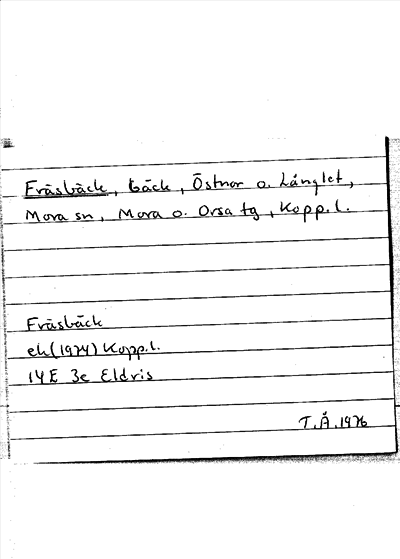 Fräsbäck, bäck, Östnor o. Långlet,
Mora sn, Mora o. Orsa tg, Kopp.l.
Fräsbäck
ek(1974) Kopp.l.
14E 3e Eldris
T.Å.1976